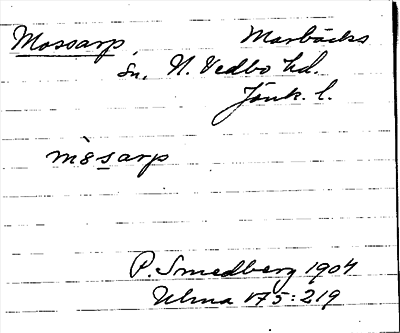 Mossarp, Marbäcks
sn, N. Vedbo hd.
Jönk. l.
m8sarp
P. Smedberg 1904
Ulma 175:219